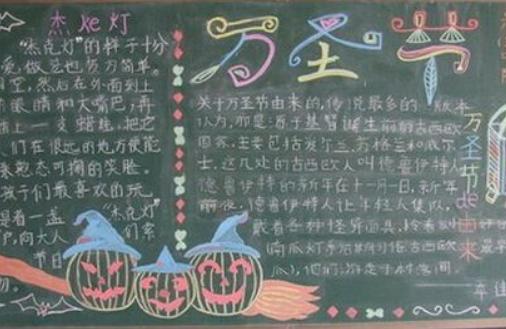 杰ke灯
"杰克灯"的样子十分
爱,做法也极为简单。
空,然后在外面刻上
的眼睛和大嘴巴,再
上一支蜡烛,把它
们在很远的地方便能
憨态可掬的笑脸。
孩子们最喜欢的玩
着一盏"杰克灯"
户,向大人们索
节日
物。
万圣节
关于万圣节由来的,传说最多的版本
认为,那是源于基督诞生前的古西欧
国家,主要包括爱尔兰、苏格兰和威尔
士。这几处的古西欧人叫德鲁伊特人。
德鲁伊特的新年在十一月一日,新年
前夜,德鲁伊特人让年轻人集队,
戴着各种怪异面具,拎着刻好的
南瓜灯
瓜),他们游走于村落间。
万圣节de由来